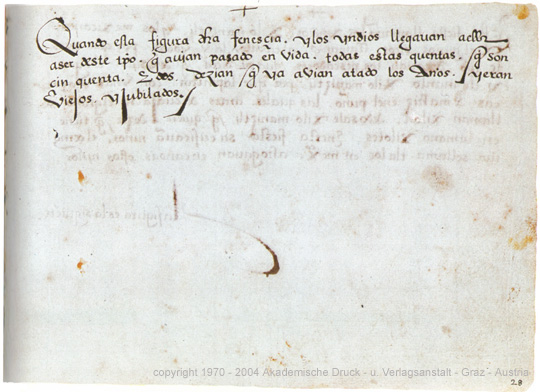 Quando esta figura dha fenescia. y los yndios llegavan a
aser deste tpo. q avian pasado en vida. todas estas quentas. q son
cinquenta. e dos. dezian q ya avian atado los años. y eran
viejos. y jubilados
copyright 1970 - 2004 Akademische Druck - u. Verlagsanstalt - Graz - Austria
28